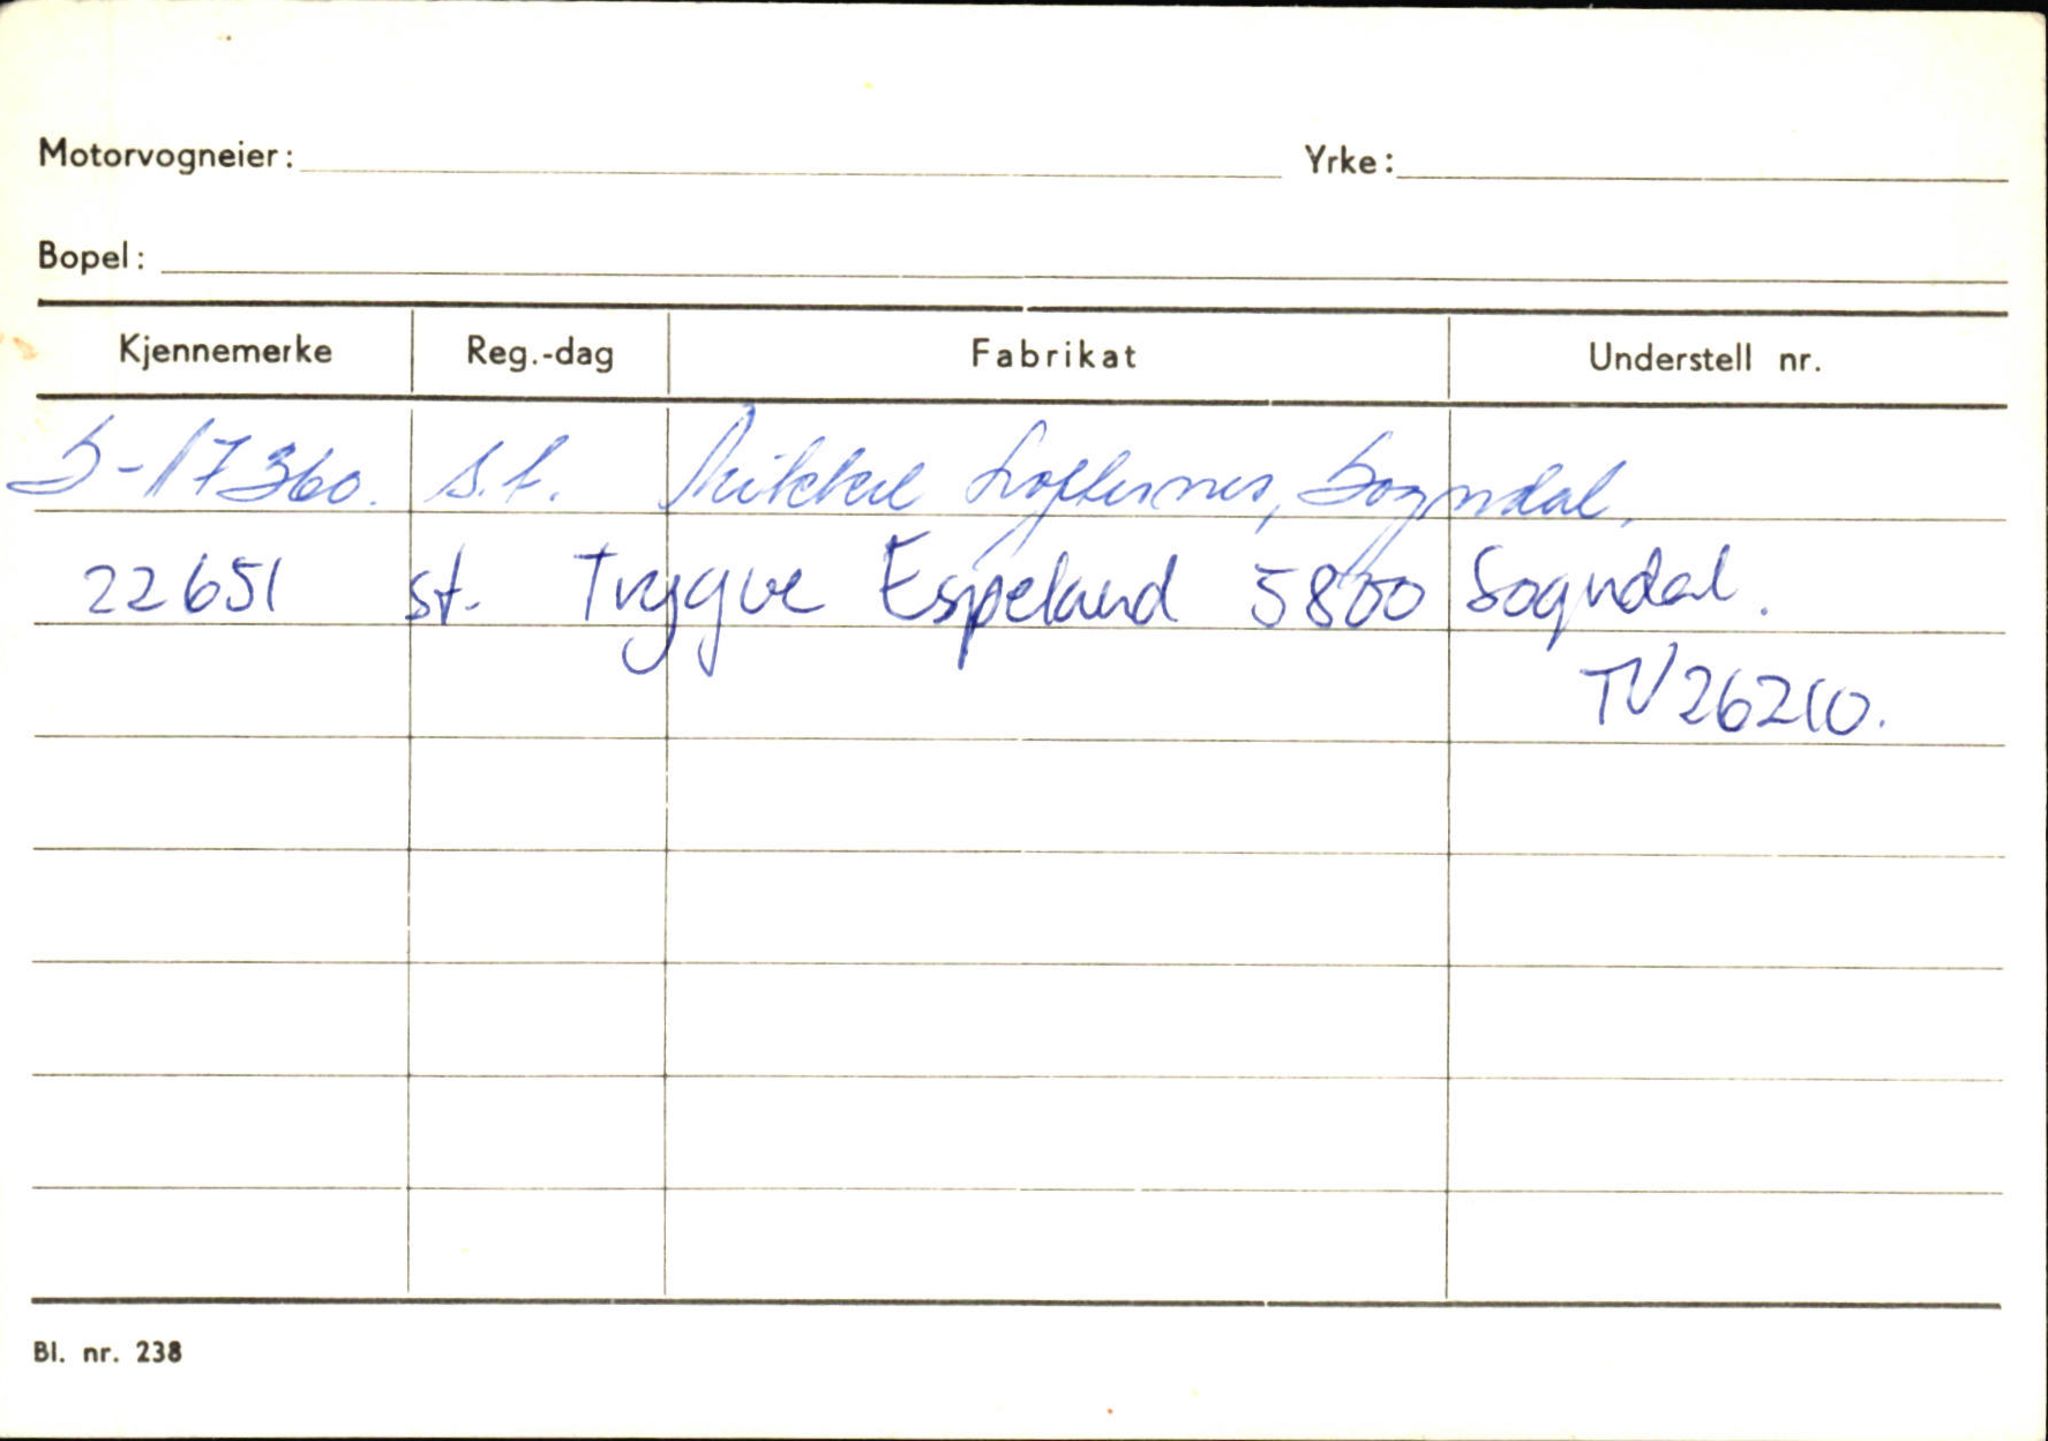 Motorvogneier: Yrke:
Bopel:
Kjennemerke Reg.-dag Fabrikat Understell nr.
S-17360. s.t. Mikkel Loftesnes, Sogndal.
22651 st. Trygve Espeland 5800 Sogndal.
TV26210.
Bl. nr. 238